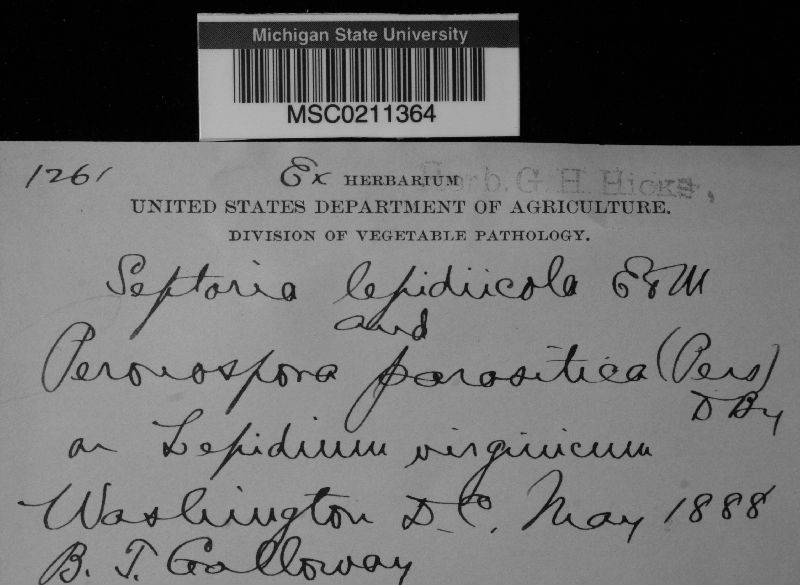 Michigan State University
MSC0211364
1261 Ex HERBARIUM Herb. G. H. Hicks,
UNITED STATES DEPARTMENT OF AGRICULTURE.
DIVISION OF VEGETABLE PATHOLOGY.
Septoria lepidiicola E & M
and
Peronospora parasitica (Pers)
D By
on Lepidium virginicum
Washington D.C. May 1888
B. T. Galloway